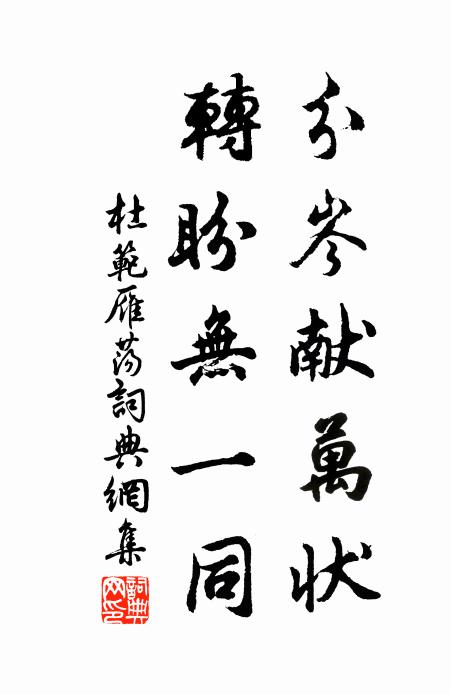 分岑献萬状
轉盼無一同
杜範雁蕩詞典網集
詞典网印